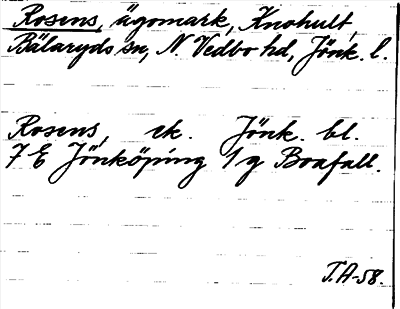 Rosens, ägomark, Knohult,
Bälaryds sn, N. Vedbo hd, Jönk. l.
Rosens, ek. Jönk. bl.
7 E Jönköping 1 g Boafall.
T.A-58.